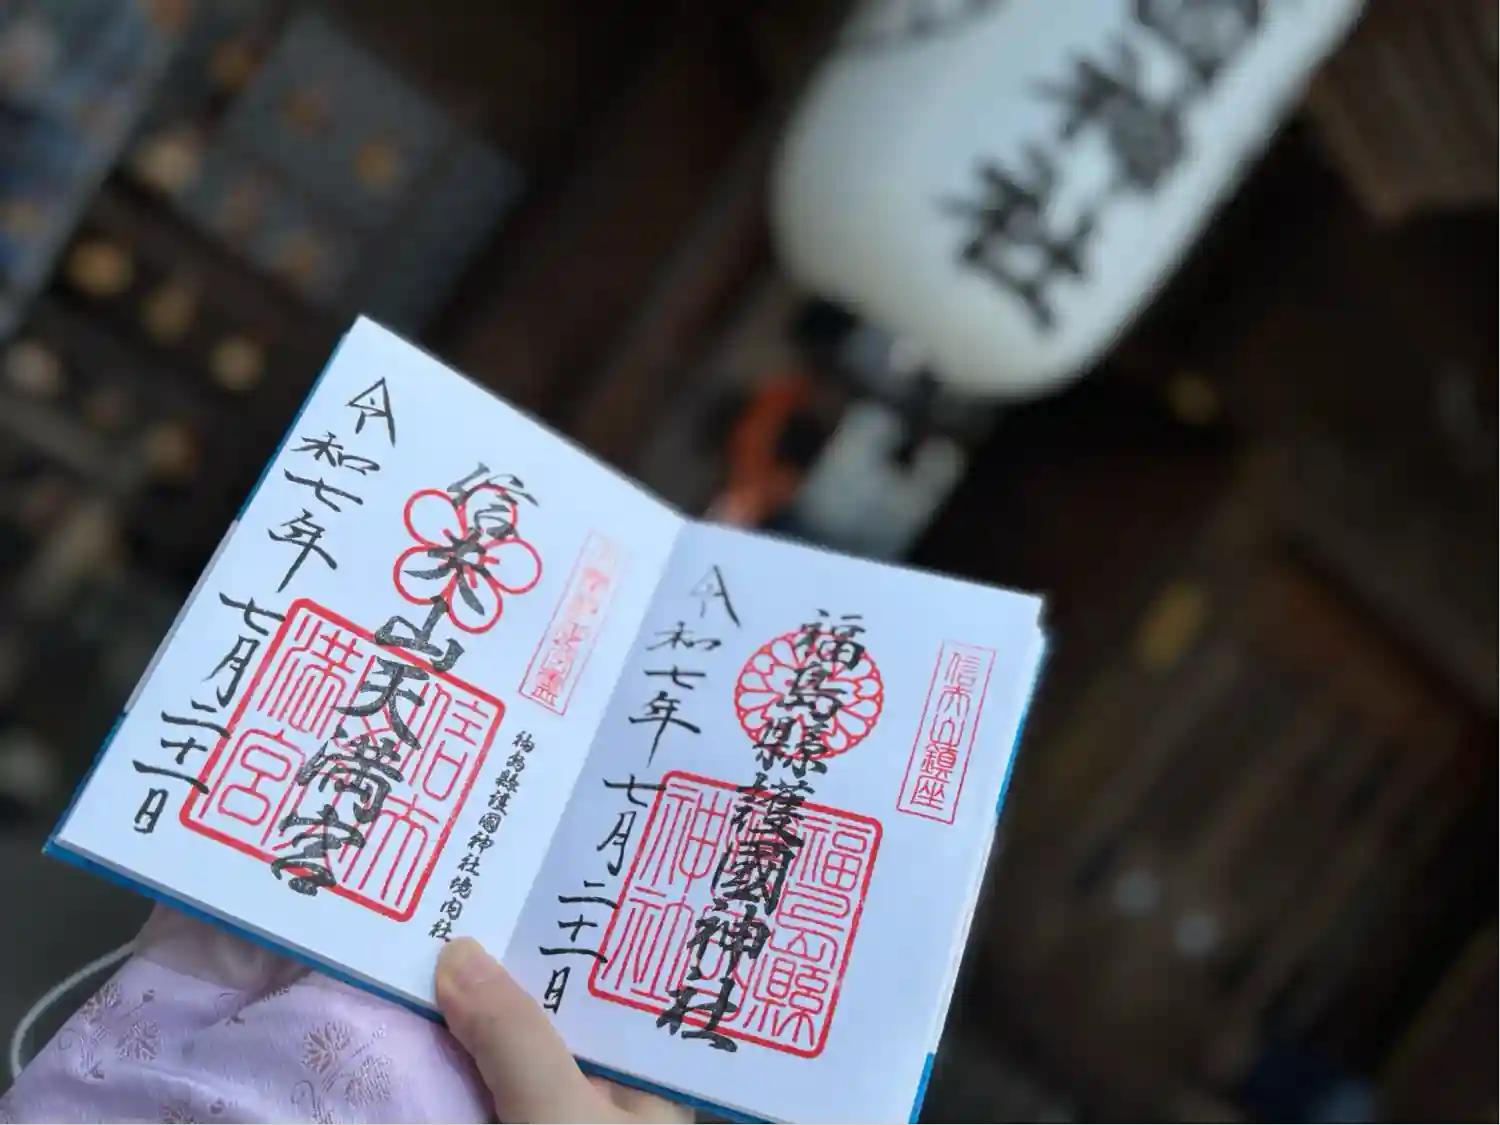 國神社
信夫山鎮座
福島縣護國神社
福島縣護國神社
令和七年
七月二十一日
福島縣護國神社境内社
信夫山天満宮
信夫山天満宮
令和七年
七月二十一日